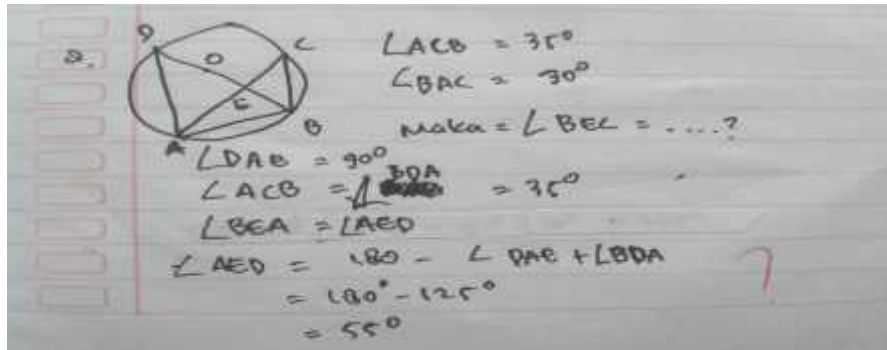 2.
D
C
O
E
A
B
∠ACB = 35°
∠BAC = 30°
maka = ∠BEC = ....?
∠DAB = 90°
∠ACB = ∠BDA = 35°
∠BEA = ∠AED
∠AED = 180 - ∠DAE + ∠BDA
= 180° - 125°
= 55°
?